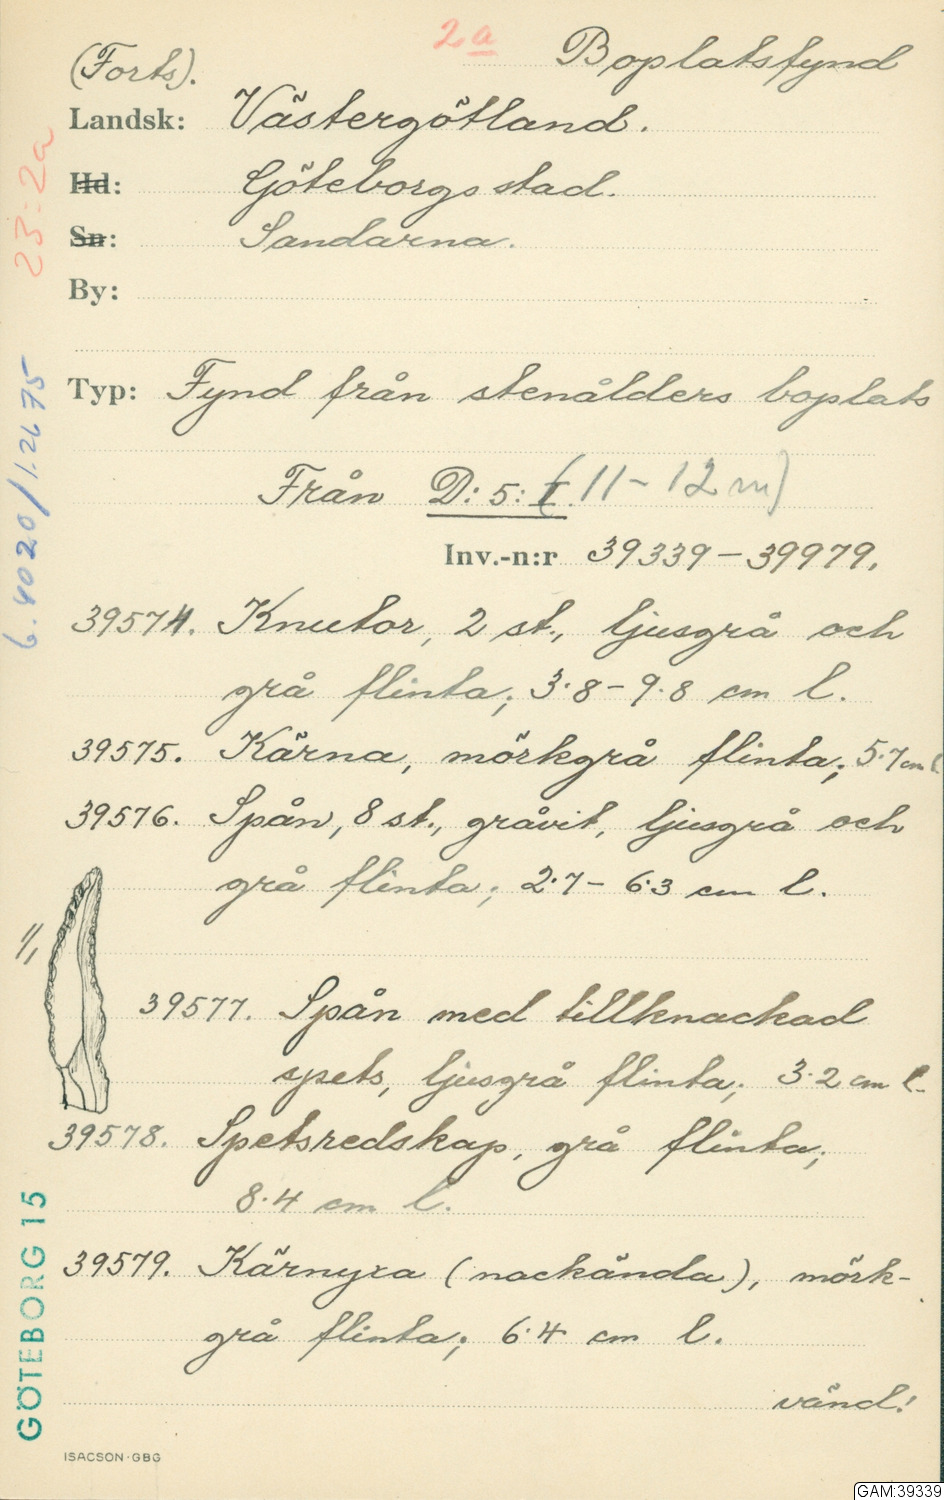 2a
Boplatsfynd
(Forts).
Landsk: Västergötland.
Hd: Göteborgs stad.
Sn: Sandarna.
By:
Typ: Fynd från stenålders boplats
Från D: 5: I. (11-12 m)
Inv.-n:r 39339-39979.
39574. Knutor, 2 st., ljusgrå och
grå flinta; 3.8-9.8 cm l.
39575. Kärna, mörkgrå flinta; 5.7 cm l.
39576. Spån, 8 st., gråvit, ljusgrå och
grå flinta; 2.7-6.3 cm l.
1/1
39577. Spån med tillknackad
spets, ljusgrå flinta; 3.2 cm l.
39578. Spetsredskap, grå flinta;
8.4 cm l.
39579. Kärnyxa (nackända), mörk-
grå flinta; 6.4 cm l.
vänd!
23:2a
6.4020/1.2675
GÖTEBORG 15
ISACSON-GBG
GAM:39339